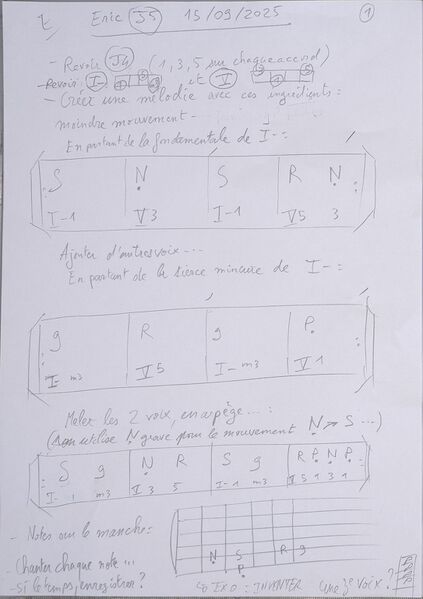 Eric J5 15/09/2025 1
- Revoir J4 (1, 3, 5 sur chaque accord)
Revoir I- et V
- Créer une mélodie avec ces ingrédients :
moindre mouvement
En partant de la fondamentale de I- :
S N S R N
I-1 V3 I-1 V5 3
Ajouter d'autres voix ...
En partant de la tierce mineure de I- :
g R g P
I- m3 V5 I- m3 V1
Mêler les 2 voix, en arpège ... :
(on utilise N grave pour le mouvement N → S ...)
S g N R S g R P N P
I- 1 m3 V 3 5 I- 1 m3 V 5 1 3 1
- Notes sur le manche :
N S R g
P
- Chanter chaque note ...
- si le temps, enregistrer ?
EXO : INVENTER une 3e voix ?